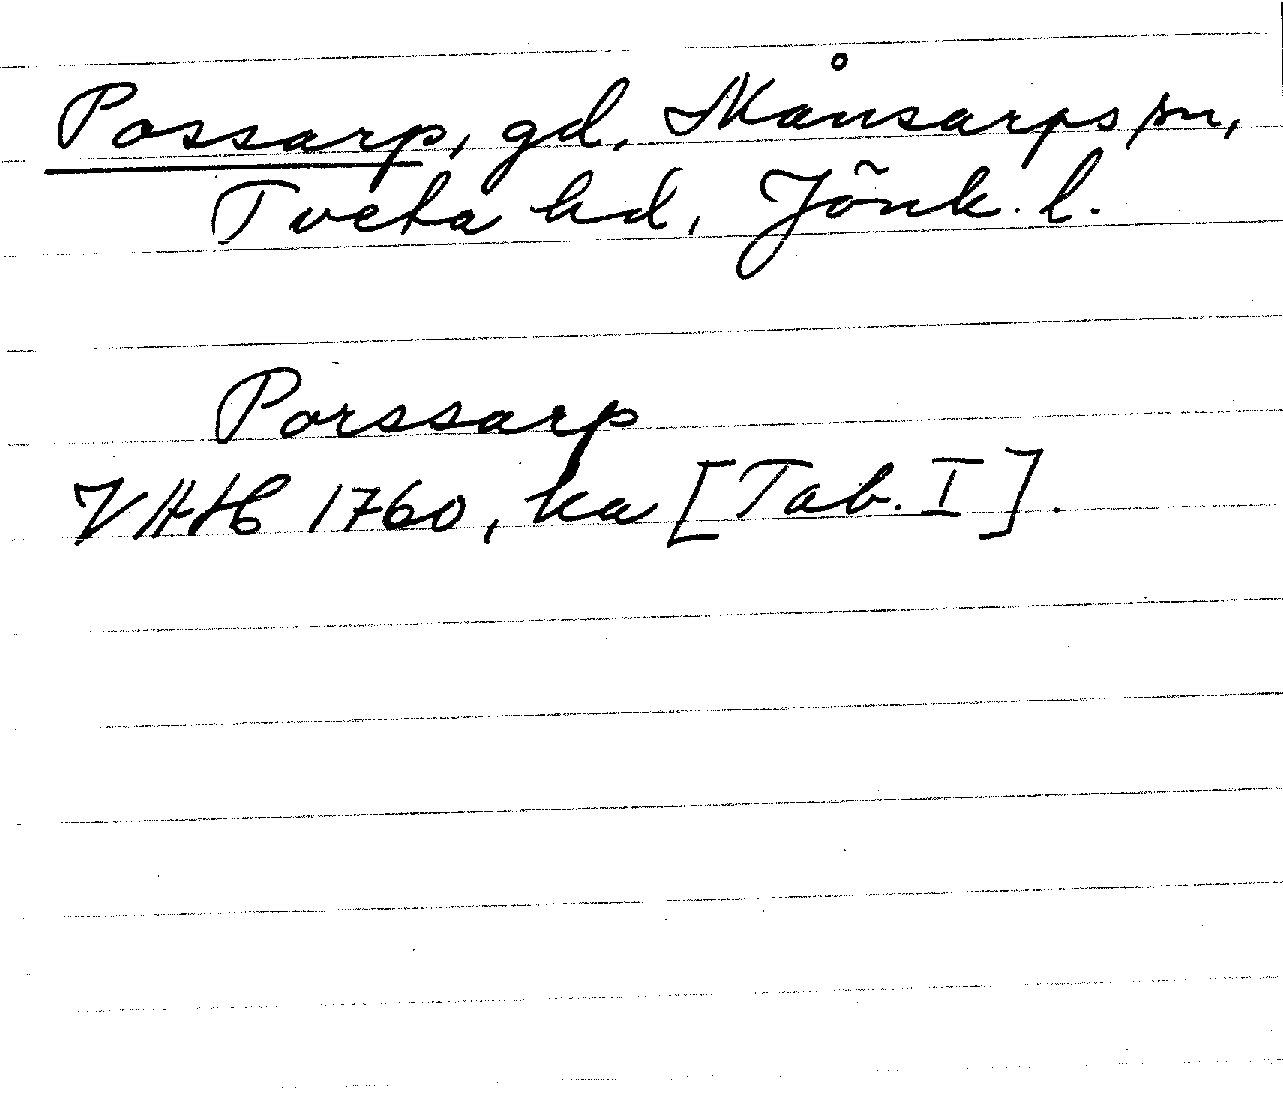 Possarp, gd, Månsarps sn,
Tveta hd, Jönk. l.
Porssarp
VHH 1760, ka [Tab. I].